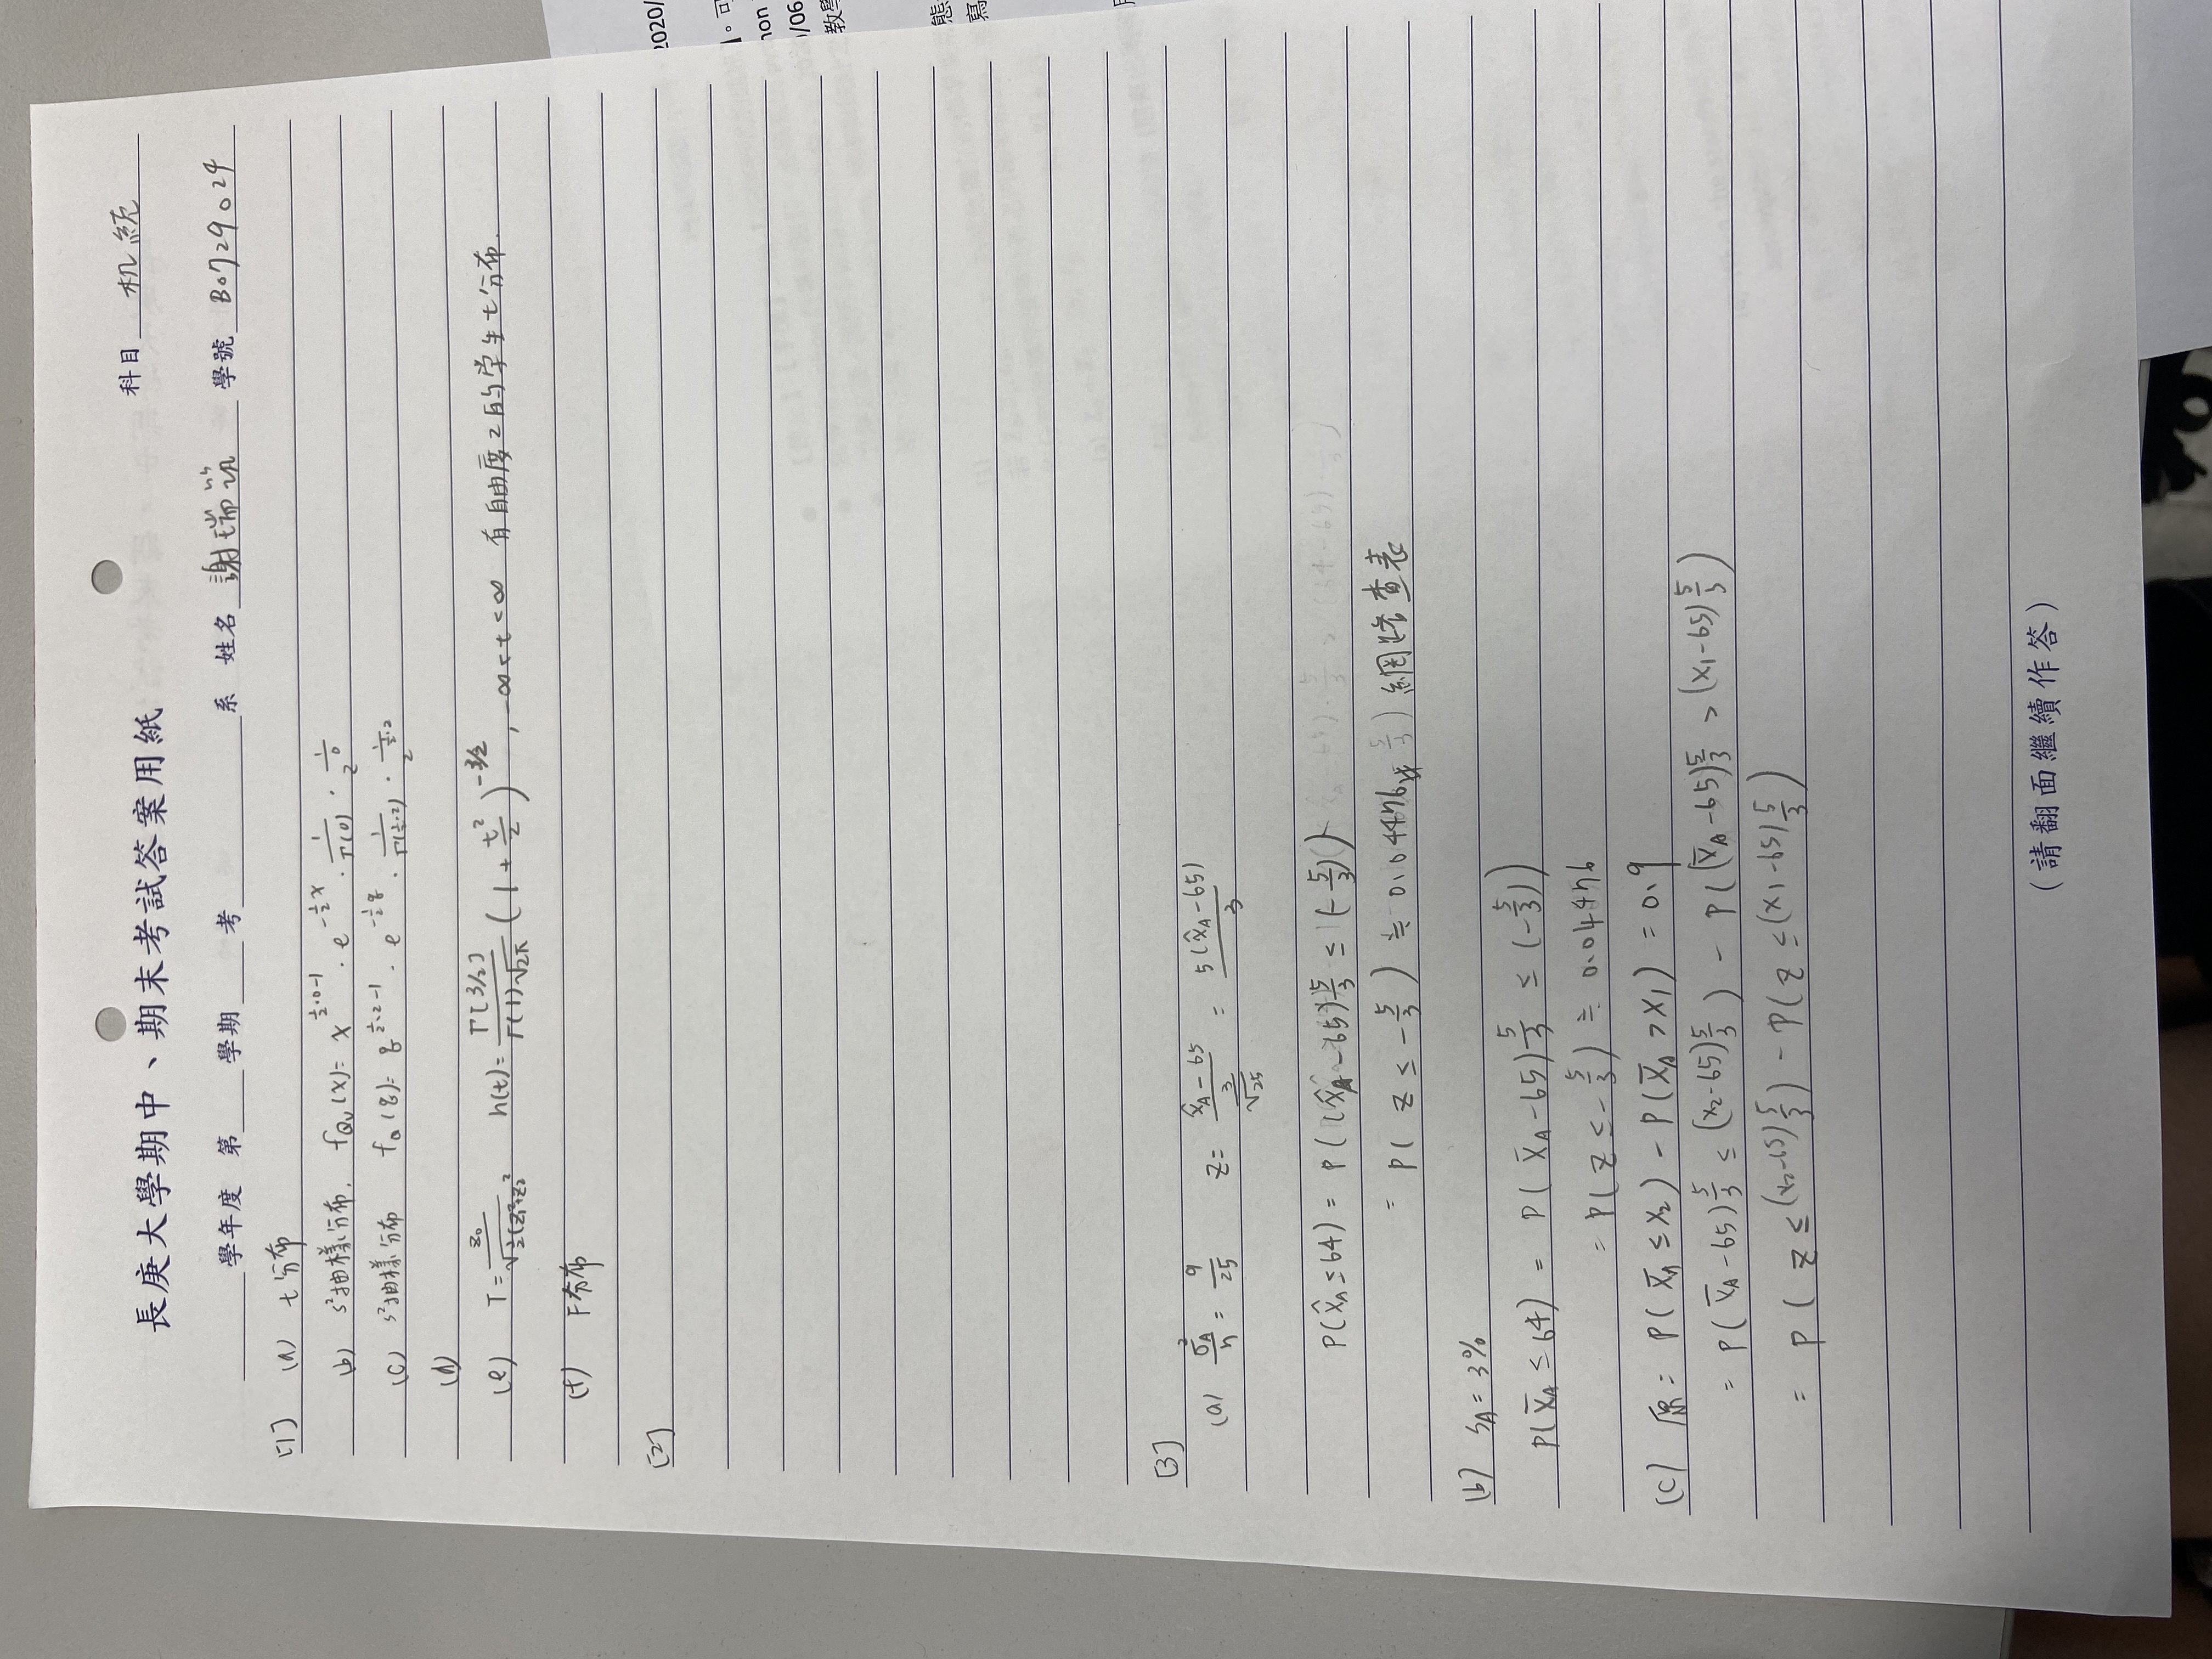 長庚大學期中、期末考試答案用紙
科目 机統
學年度 第 學期 考 系 姓名 謝瑞筑 學號 B0729024
[1] (a) t分布
(b) s²抽樣分布. f_{Qν}(x)= x^{½·0-1} · e^{-½x} · 1/Γ(0) · 1/2^0
(c) s²抽樣分布 f_Q(q)= q^{½·2-1} · e^{-½q} · 1/Γ(½·2) · 1/2^{½·2}
(d)
(e) T= z₀/√(½(z₁²+z₂²)) h(t)= Γ[3/2]/(Γ(1)√2π) (1+ t²/2)^{-3/2}, -∞<t<∞ 有自由度2的学生t分布.
(f) F分布
[2]
[3]
(a) σ_A²/n = 9/25 z= (x̂_A-65)/(3/√25) = 5(x̂_A-65)/3
P(x̂_A≤64) = P((x̂_A-65)5/3 ≤ (-5/3))
= P( z ≤ -5/3 ) ≒ 0.04476 網路查表
(b) s_A= 3%
P(x̄_A ≤ 64) = P( x̄_A-65)5/3 ≤ (-5/3))
= P( z ≤ -5/3 ) ≒ 0.04476
(c) 原= P( x̄_A ≤ x₂) - P( x̄_A > x₁) = 0.9
= P( x̄_A-65)5/3 ≤ (x₂-65)5/3 ) - P((x̄_A-65)5/3 > (x₁-65)5/3 )
= P ( z ≤ (x₂-65)5/3 ) - P( z ≤ (x₁-65)5/3 )
(請翻面繼續作答)
2020/
。可
non
/06
教學
態
寫